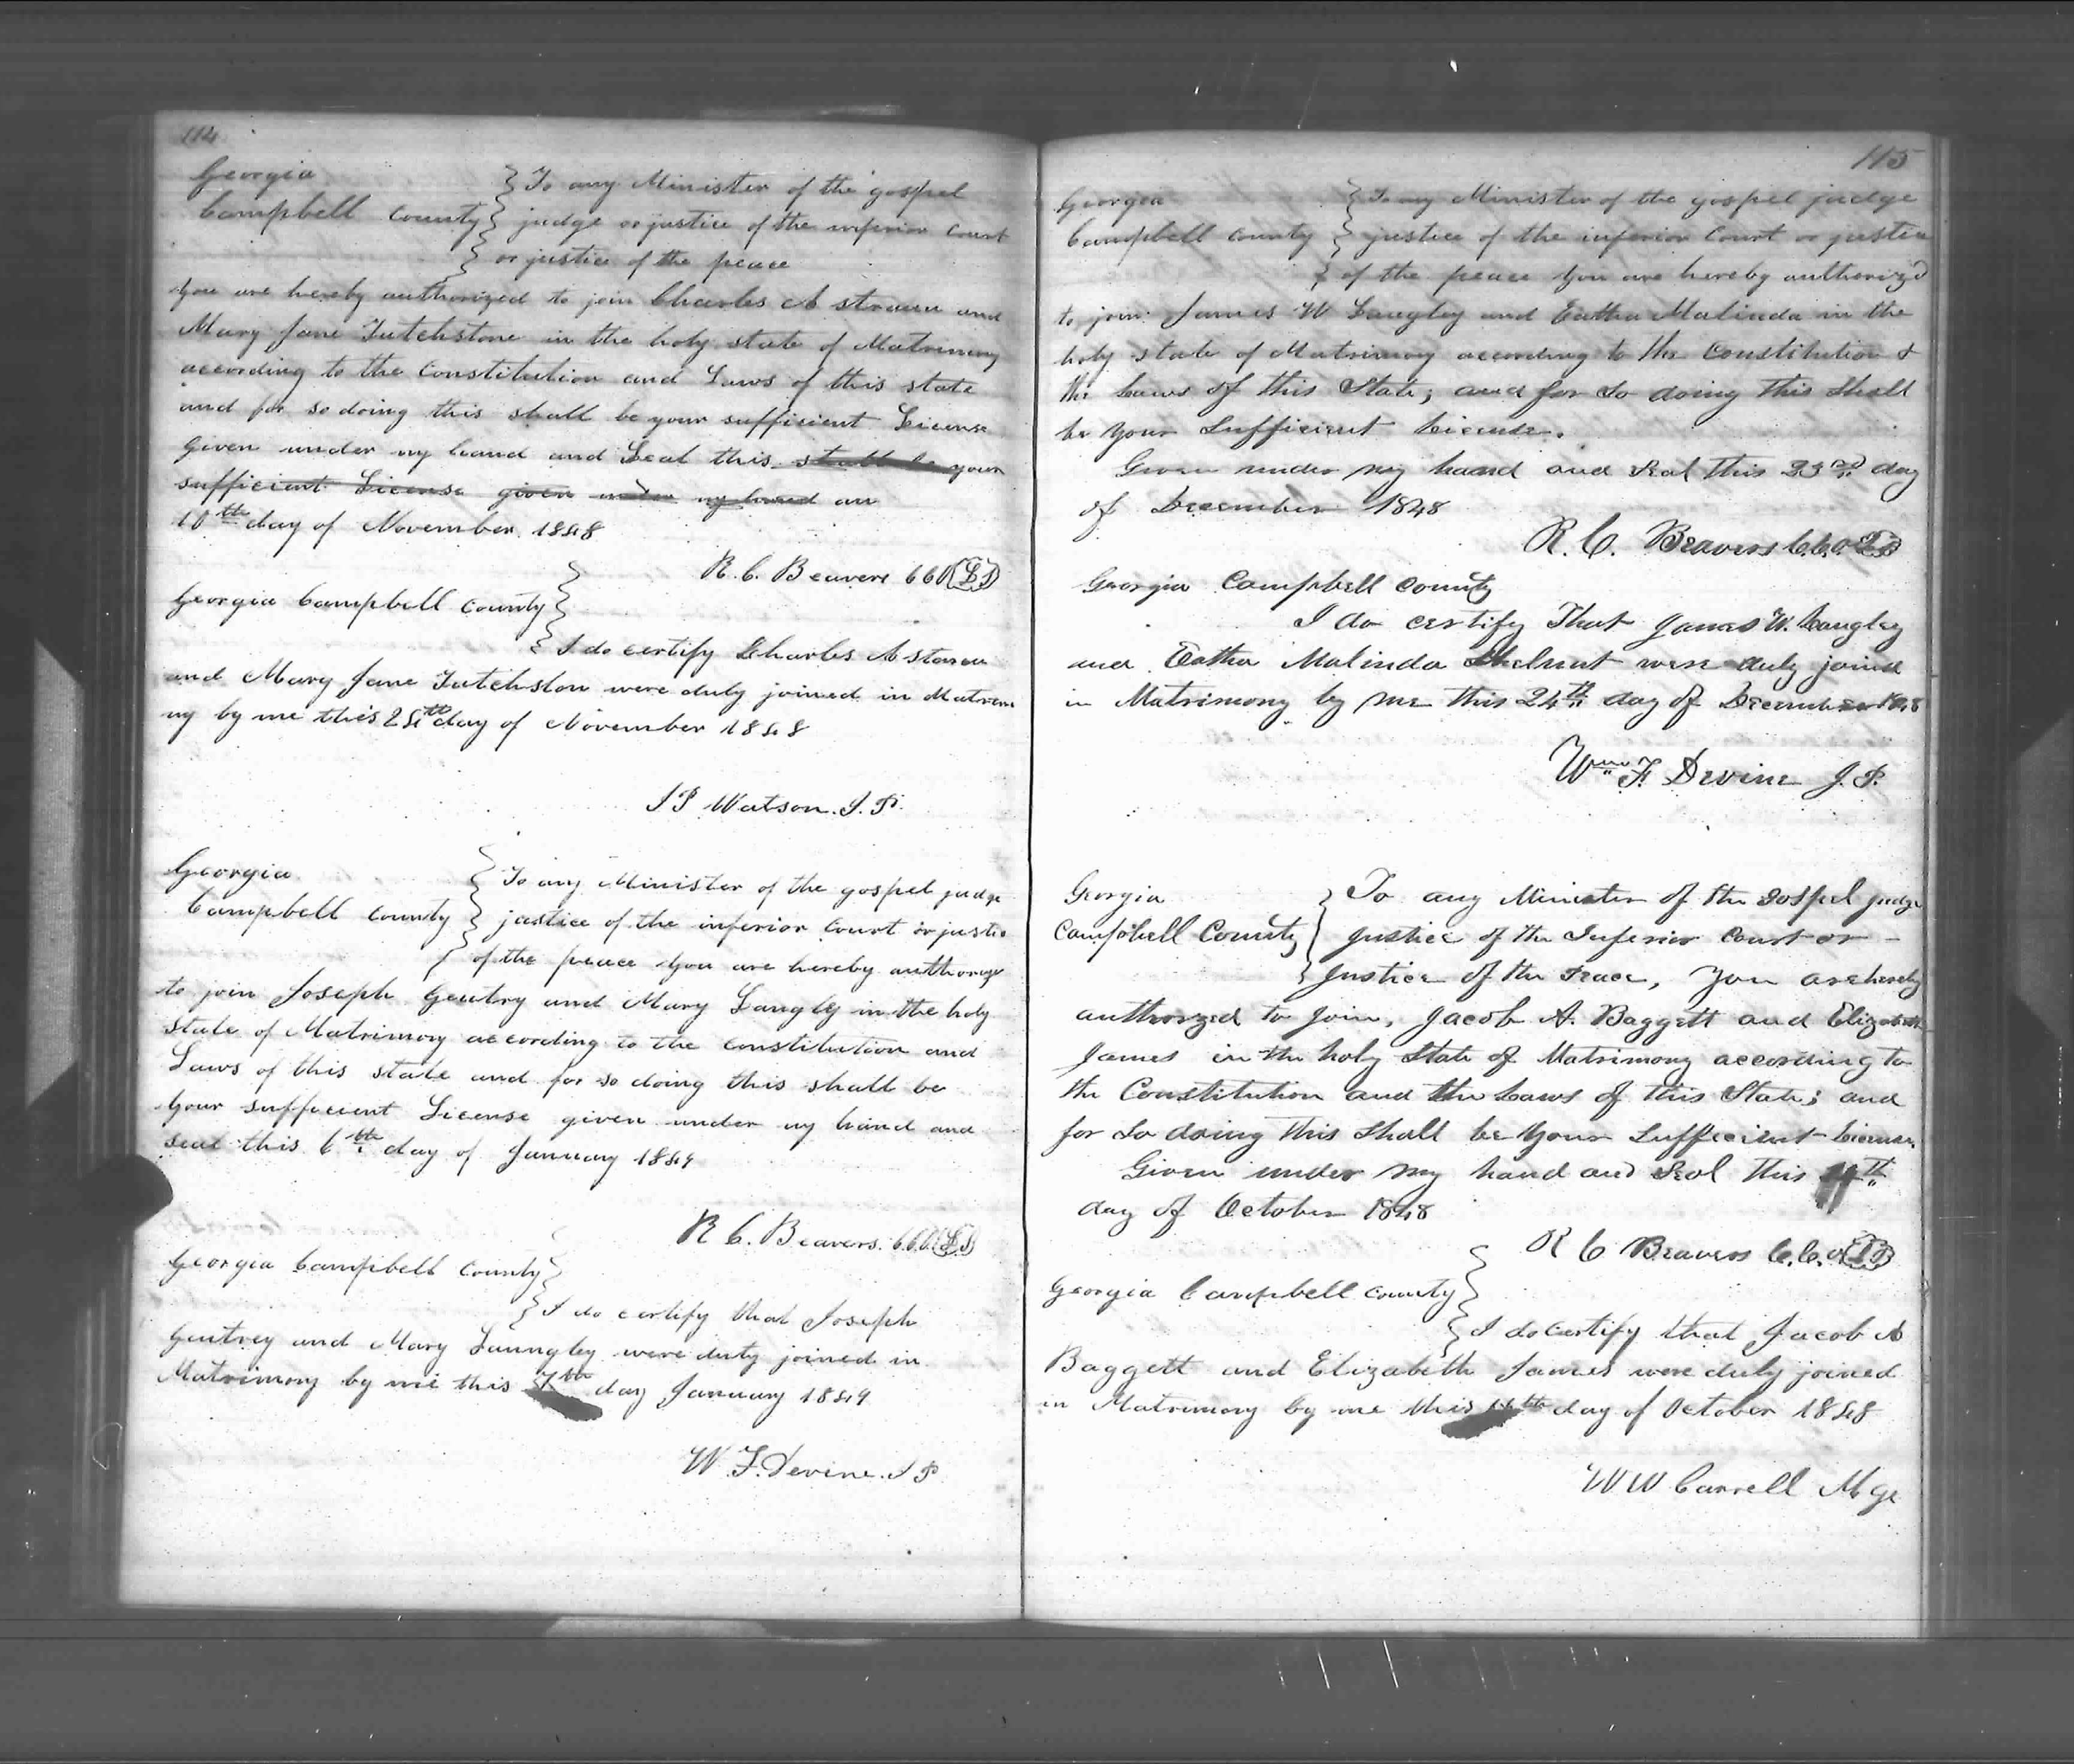 114
Georgia
Campbell County
To any Minister of the gospel
judge or justice of the inferior Court
or justice of the peace
You are hereby authorized to join Charles A and
Mary Jane Tutchstone in the holy state of Matrimony
according to the Constitution and Laws of this state
and for so doing this shall be your sufficient License
given under my hand and Seal this shall be your
sufficient License given under my hand an
10th day of November 1848
R. C. Beavers CCO (LS)
Georgia Campbell County
I do certify Charles A
and Mary Jane Tutchston were duly joined in Matrim
ny by me this 24th day of November 1848
J P Watson. J. P.
Georgia
Campbell County
To any Minister of the gospel judge
justice of the inferior Court or justic
of the peace You are hereby
to join Joseph Gentry and Mary Langly in the holy
state of Matrimony according to the constitution and
Laws of this state and for so doing this shall be
your sufficient License given under my hand and
seal this 6th day of January 1849
R C. Beavers. CCO. (LS)
Georgia Campbell County
I do certify that Joseph
Gentrey and Mary Laungley were duly joined in
Matrimony by me this 7th day January 1849
W F. Devine. J P
115
Georgia
Campbell County
To any Minister of the gospel judge
justice of the inferior Court or justice
of the peace You are hereby authoriz'd
to join James W Langley and Eatha Malinda in the
holy state of Matrimony according to the Constitution &
the Laws of this State; and for So doing this Shall
be Your Sufficient License.
Given under my hand and Seal this 23rd day
of December 1848
R. C. Beavers C.C.O (LS)
Georgia Campbell County
I do certify That James W. Langley
and Eatha Malinda were duly joined
in Matrimony by me this 24th day of December 1848
Wm F. Devine J. P.
Georgia
Campbell County
To any Minister of the Gospel judge
Justice of the Inferior Court or -
Justice of the Peace, You are hereby
authorized to Join, Jacob A. Baggett and Elizabeth
James in the holy State of Matrimony according to
the Constitution and the Laws of this State; and
for So doing this Shall be Your Sufficient License.
Given under my hand and Seal this 11th
day of October 1848
R C Beavers C.C.O (LS)
Georgia Campbell County
I do certify that Jacob A
Baggett and Elizabeth James were duly joined
in Matrimony by me this day of October 1848
W W Carrell M Ge